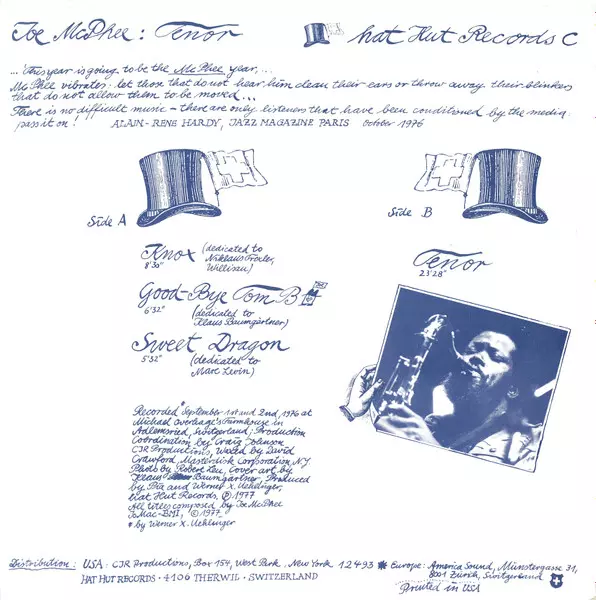 Joe McPhee: Tenor
hat Hut Records C
... This year is going to be the McPhee year, ...
McPhee vibrates. let those that do not hear him clean their ears or throw away their blinkers
that do not allow them to be moved ...
There is no difficult music - there are only listeners that have been conditioned by the media.
pass it on! ALAIN-RENE HARDY, JAZZ MAGAZINE PARIS October 1976
Side A
Side B
Knox (dedicated to
8'30" Niklaus Troxler,
Willisau)
Good-Bye Tom B
6'32" (dedicated to
Klaus Baumgärtner)
Sweet Dragon
5'32" (dedicated to
Marc Levin)
Tenor
23'28"
Recorded * September 1st and 2nd, 1976 at
Michael Overhage's Farmhouse in
Adlemsried, Switzerland, Production
Coordination by Craig Johnson
CJR Productions, Waxed by David
Crawford, Masterdisk Corporation N.Y.
Photo by Robert Lau, Cover art by
Klaus Baumgärtner, Produced
by Pia and Werner X. Uehlinger,
hat Hut Records, ℗ 1977
All titles composed by Joe McPhee
JoMac-BMI, ©1977
* by Werner X. Uehlinger
Distribution: USA: CJR Productions, Box 154, West Park, New York 12493 * Europe: America Sound, Münstergasse 31,
8001 Zürich, Switzerland
HAT HUT RECORDS · 4106 THERWIL · SWITZERLAND
Printed in USA